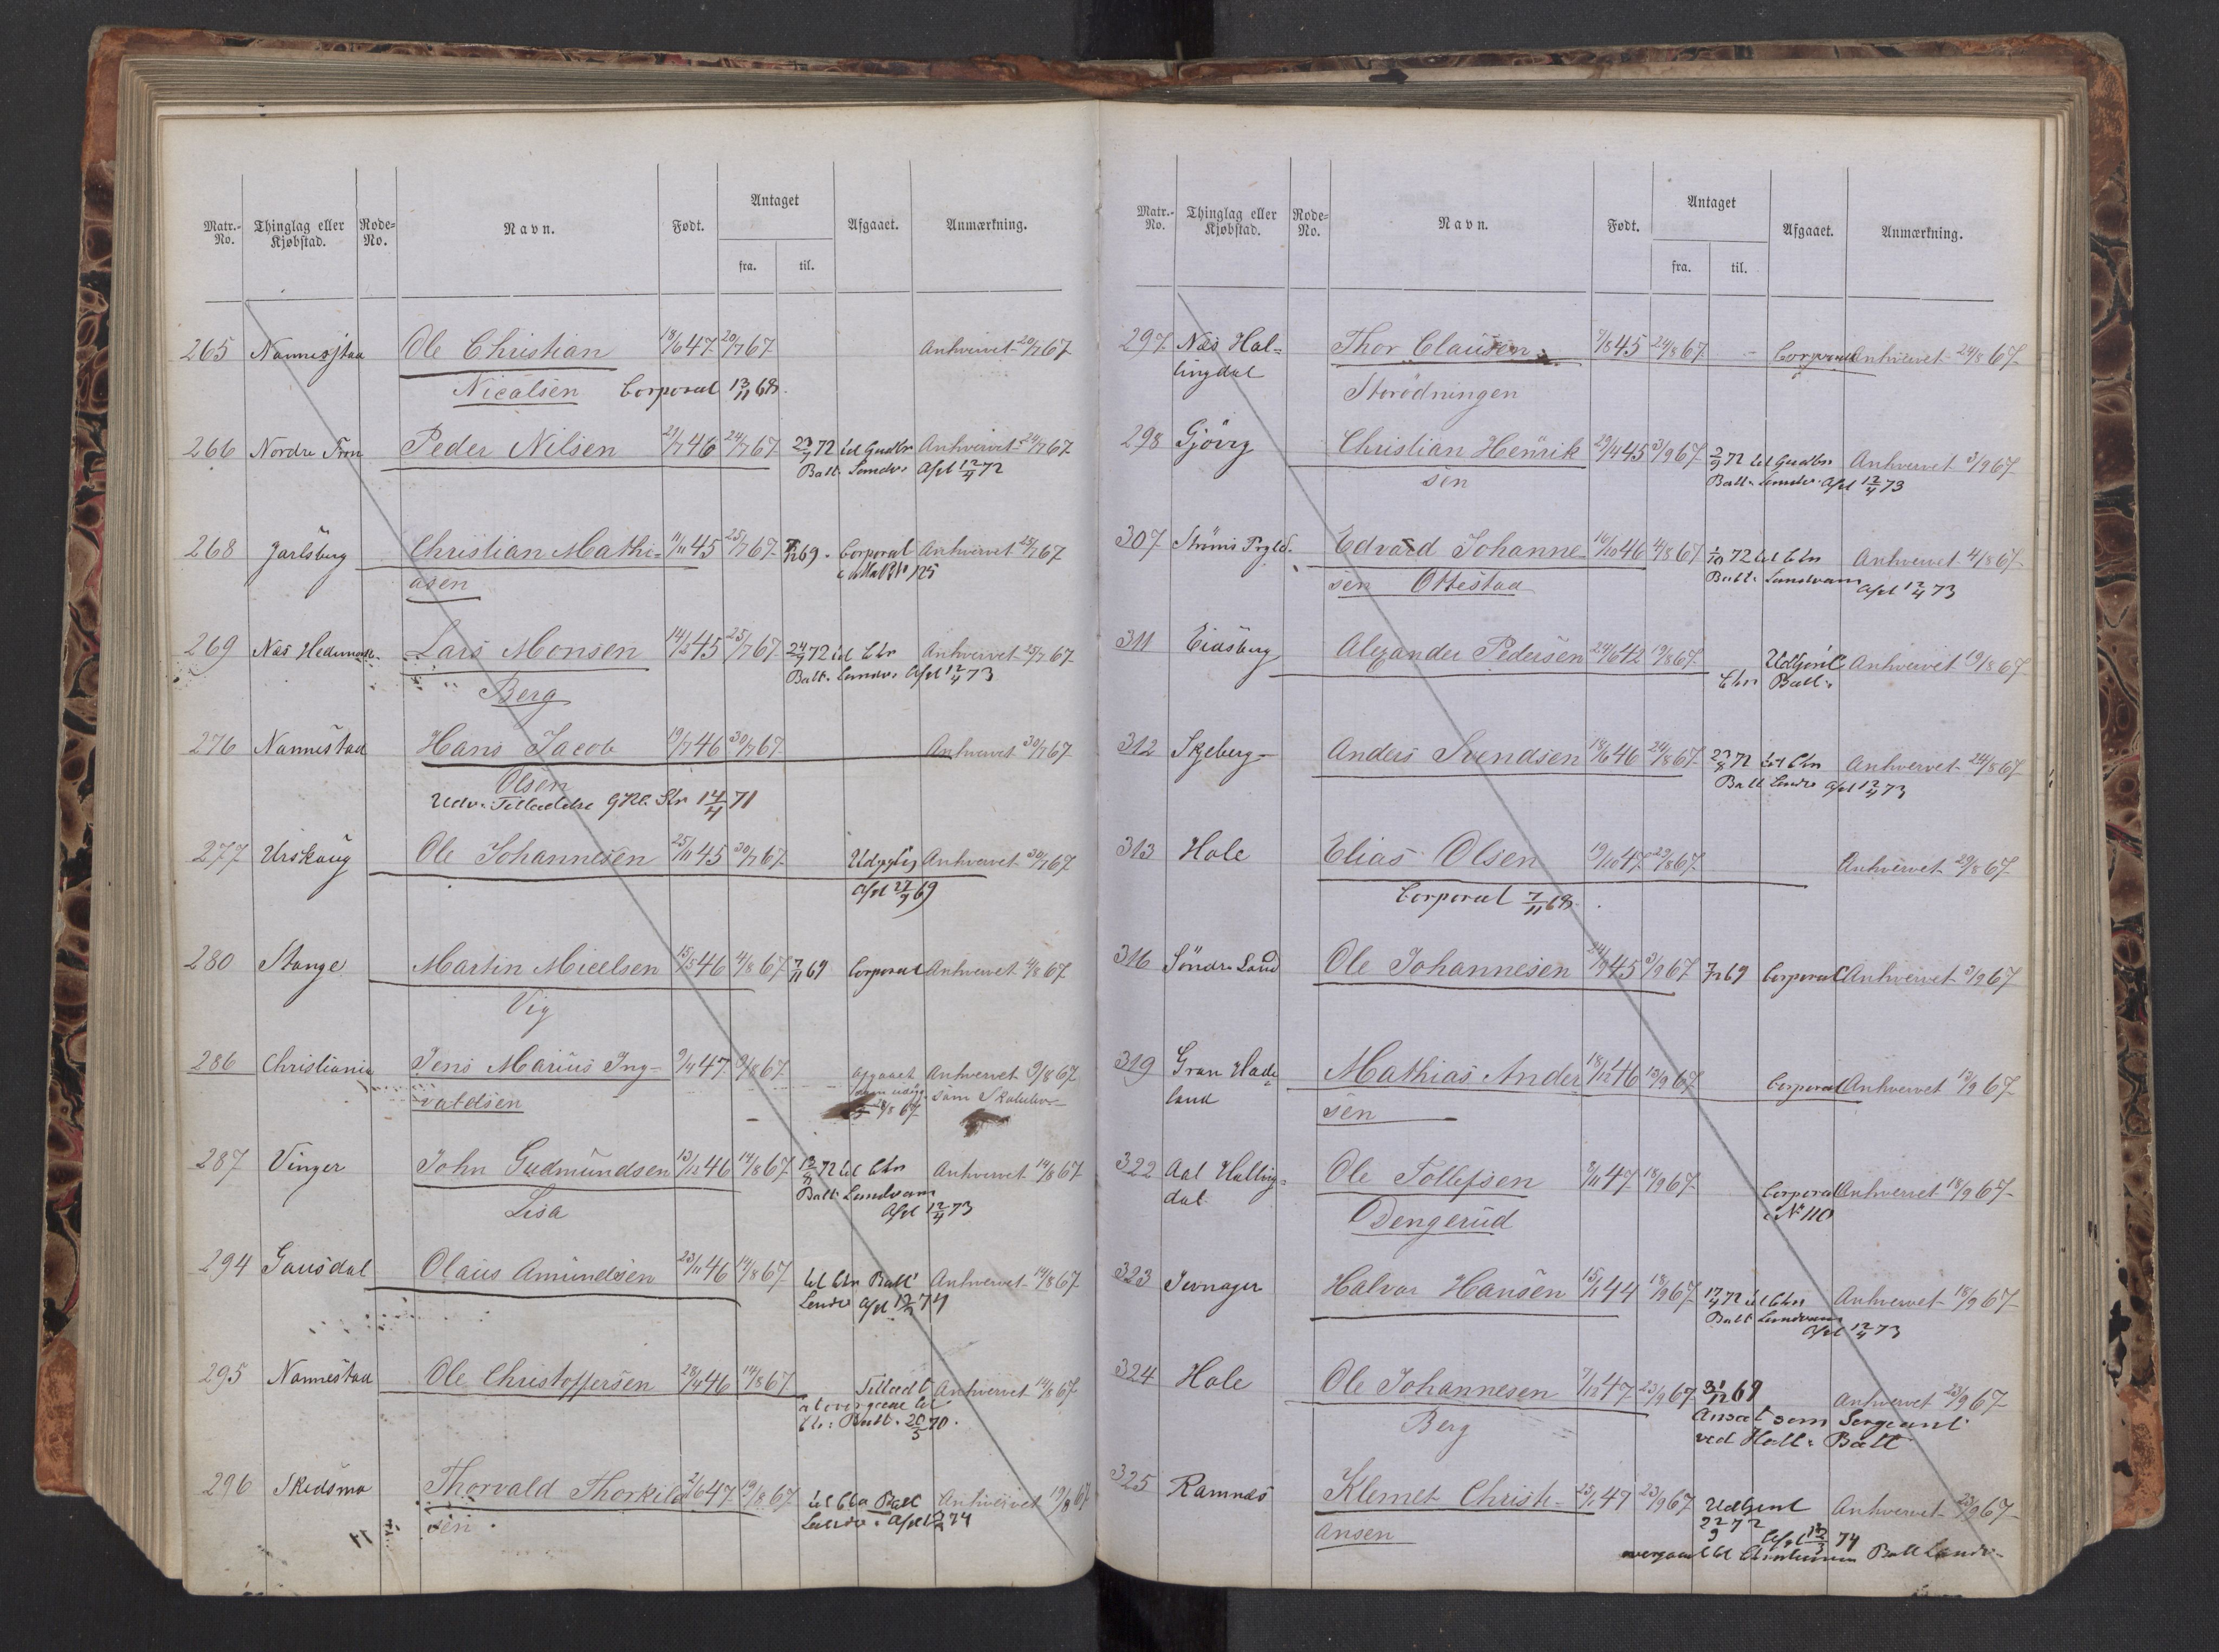 Matr.- No. Thinglag eller Kjøbstad. Rode= No. Navn. Født. Antaget fra. til. Afgaaet. Anmærkning.
265 Nannestad Ole Christian 18/6 47 20/7 67 Anhvervet 20/7 67
Nicalsen Corporal 13/11 68.
266 Nordre Fron Peder Nilsen 29/7 46 24/7 67 23/9 72 til Gudbr Anhvervet 24/7 67
Batt. Landv. Afsk 12/4 72
268 Jarlsberg Christian Mathi= 11/11 45 25/7 67 7/11 69. Corporal Anhvervet 25/7 67
asen
269 Næs Hedemark. Lars Monsen 14/5 45 25/7 67 24/9 72 til Chr Anhvervet 25/7 67
Batt. Landv. Afsk 12/4 73
Berg
276 Nannestad Hans Jacob 19/7 46 30/7 67 Anhvervet 30/7 67
Olsen
Udv. Tilladelse 14/4 71
277 Urskoug Ole Johannesen 25/11 45 30/7 67 Anhvervet 30/7 67
Afsk 27/9 69
280 Stange Martin Micelsen 15/5 46 4/8 67 7/11 69 Corporal Anhvervet 4/8 67
Vig
286 Christiania Jens Marius Ing- 9/4 47 9/8 67 Afgaaet Anhvervet 9/8 67
valdsen som Skoleelev
287 Vinger John Gudmundsen 13/12 46 14/8 67 13/9 72 til Chr Anhvervet 14/8 67
Batt. Landværn
Lisa Afsk 12/4 73
294 Gausdal Olaus Amundsen 23/11 46 14/8 67 til Chr Batt Anhvervet 14/8 67
Landv Afsk 12/3 74
295 Nannestad Ole Christoffersen 28/4 46 14/8 67 Tilladt Anhvervet 14/8 67
at overgaae til
Chr: Batt. 20/5 70.
296 Skedsmo Thorvald Thorkild 2/6 47 19/8 67 til Chra Batt Anhvervet 19/8 67
sen. Landv. Afsk 12/3 74
Matr.- No. Thinglag eller Kjøbstad. Rode= No. Navn. Født. Antaget fra. til. Afgaaet. Anmærkning.
297 Næs Hal= Thor Clausen 7/8 45 24/8 67 Corporal Anhvervet 24/8 67
lingdal Storödningen
298 Gjövig Christian Henrik 29/4 45 3/9 67 2/9 72 til Gudbr Anhvervet 3/9 67
sen Batt. Landv. Afsk 12/4 73
307 Ströms Prgld. Edvard Johanne= 16/10 46 4/8 67 1/10 72 til Chr Anhvervet 4/8 67
sen Ottestad Batt. Landværn Afsk 12/4 73
311 Eidsberg Alexander Pedersen 24/6 42 19/8 67 Anhvervet 19/8 67
Chr Batt.
312 Skjeberg Anders Svendsen 18/6 46 24/8 67 23/8 72 til Chr Anhvervet 24/8 67
Batt Landv Afsk 12/4 73
313 Hole Elias Olsen 19/10 47 29/8 67 Anhvervet 29/8 67
Corporal 7/11 68.
316 Söndre Land Ole Johannesen 24/9 45 3/9 67 7/11 69 Corporal Anhvervet 3/9 67
319 Gran Hade= Mathias Ander 18/12 46 13/9 67 Corporal Anhvervet 13/9 67
land sen
322 Aal Halling= Ole Tollefsen 8/11 47 18/9 67 Corporal Anhvervet 18/9 67
dal Dengerud No 110
323 Jevnager Halvor Hansen 15/1 44 18/9 67 17/9 72 til Chr Anhvervet 18/9 67
Batt Landværn
Afsk 12/4 73
324 Hole Ole Johannesen 7/12 47 23/9 67 31/12 69 Anhvervet 23/9 67
Berg Ansat som Sergeant
ved Hall. Batt
325 Ramnæs Klemet Christi- 25/1 47 23/9 67 Anhvervet 23/9 67
ansen 22/9 72 Afsk 12/3 74
overgaaet til Christiania Batt Landv.